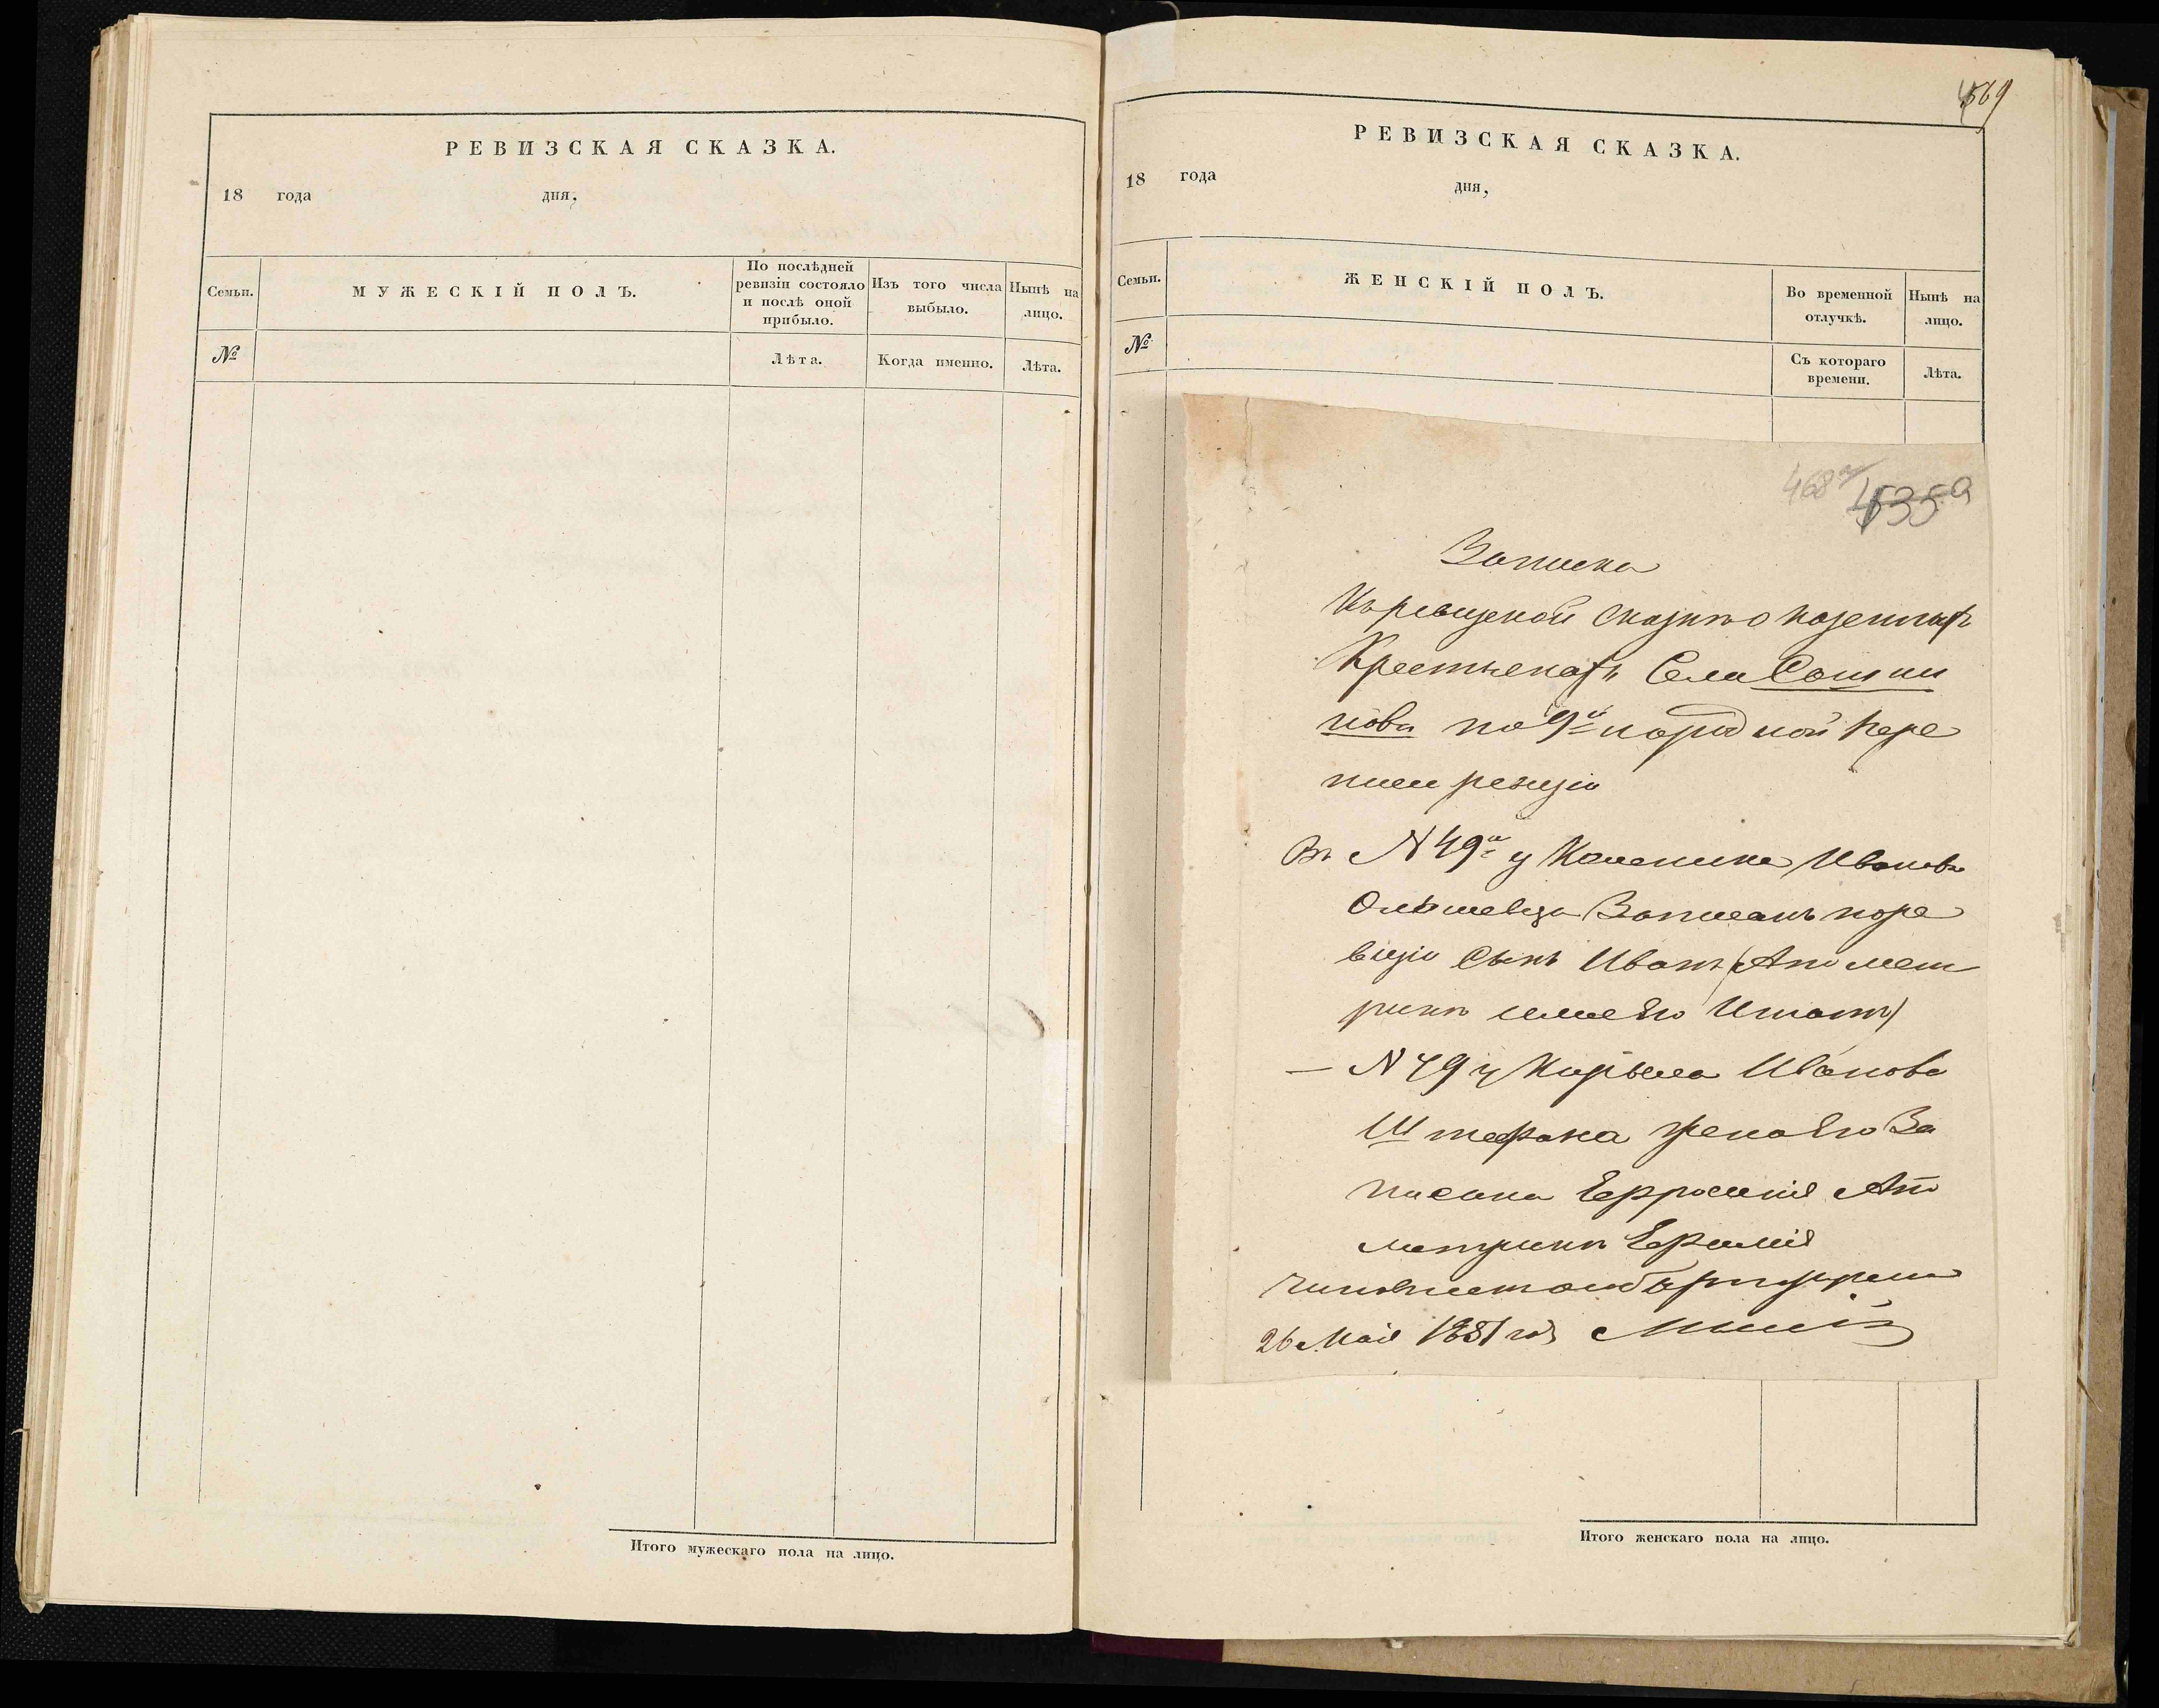 РЕВИЗСКАЯ СКАЗКА.
18 года дня,
Семьи.
МУЖЕСКІЙ ПОЛЪ.
По послѣдней
ревизіи состояло
и послѣ оной
прибыло.
Изъ того числа
выбыло.
Нынѣ на
лицо.
№
Лѣта.
Когда именно.
Лѣта.
Итого мужескаго пола на лицо.
469
РЕВИЗСКАЯ СКАЗКА.
18 года дня,
Семьи.
ЖЕНСКІЙ ПОЛЪ.
Во временной
отлучкѣ.
Нынѣ на
лицо.
№
Съ котораго
времени.
Лѣта.
468а 435а
Записка
Къ ревизской сказки о казенныхъ
Крестьенахъ Села
по 9й народной пере
писи ревизіи
Въ N 49й у Каленика Иванова
Записанъ по ре
визіи Сынъ Иванъ (А по мет
рики имя его Игнатъ)
— N 79 у Кирыла Иванова
жена его За
писана Ефросинія А по
метрики Ефимія
26 Мая 1851 год
Итого женскаго пола на лицо.